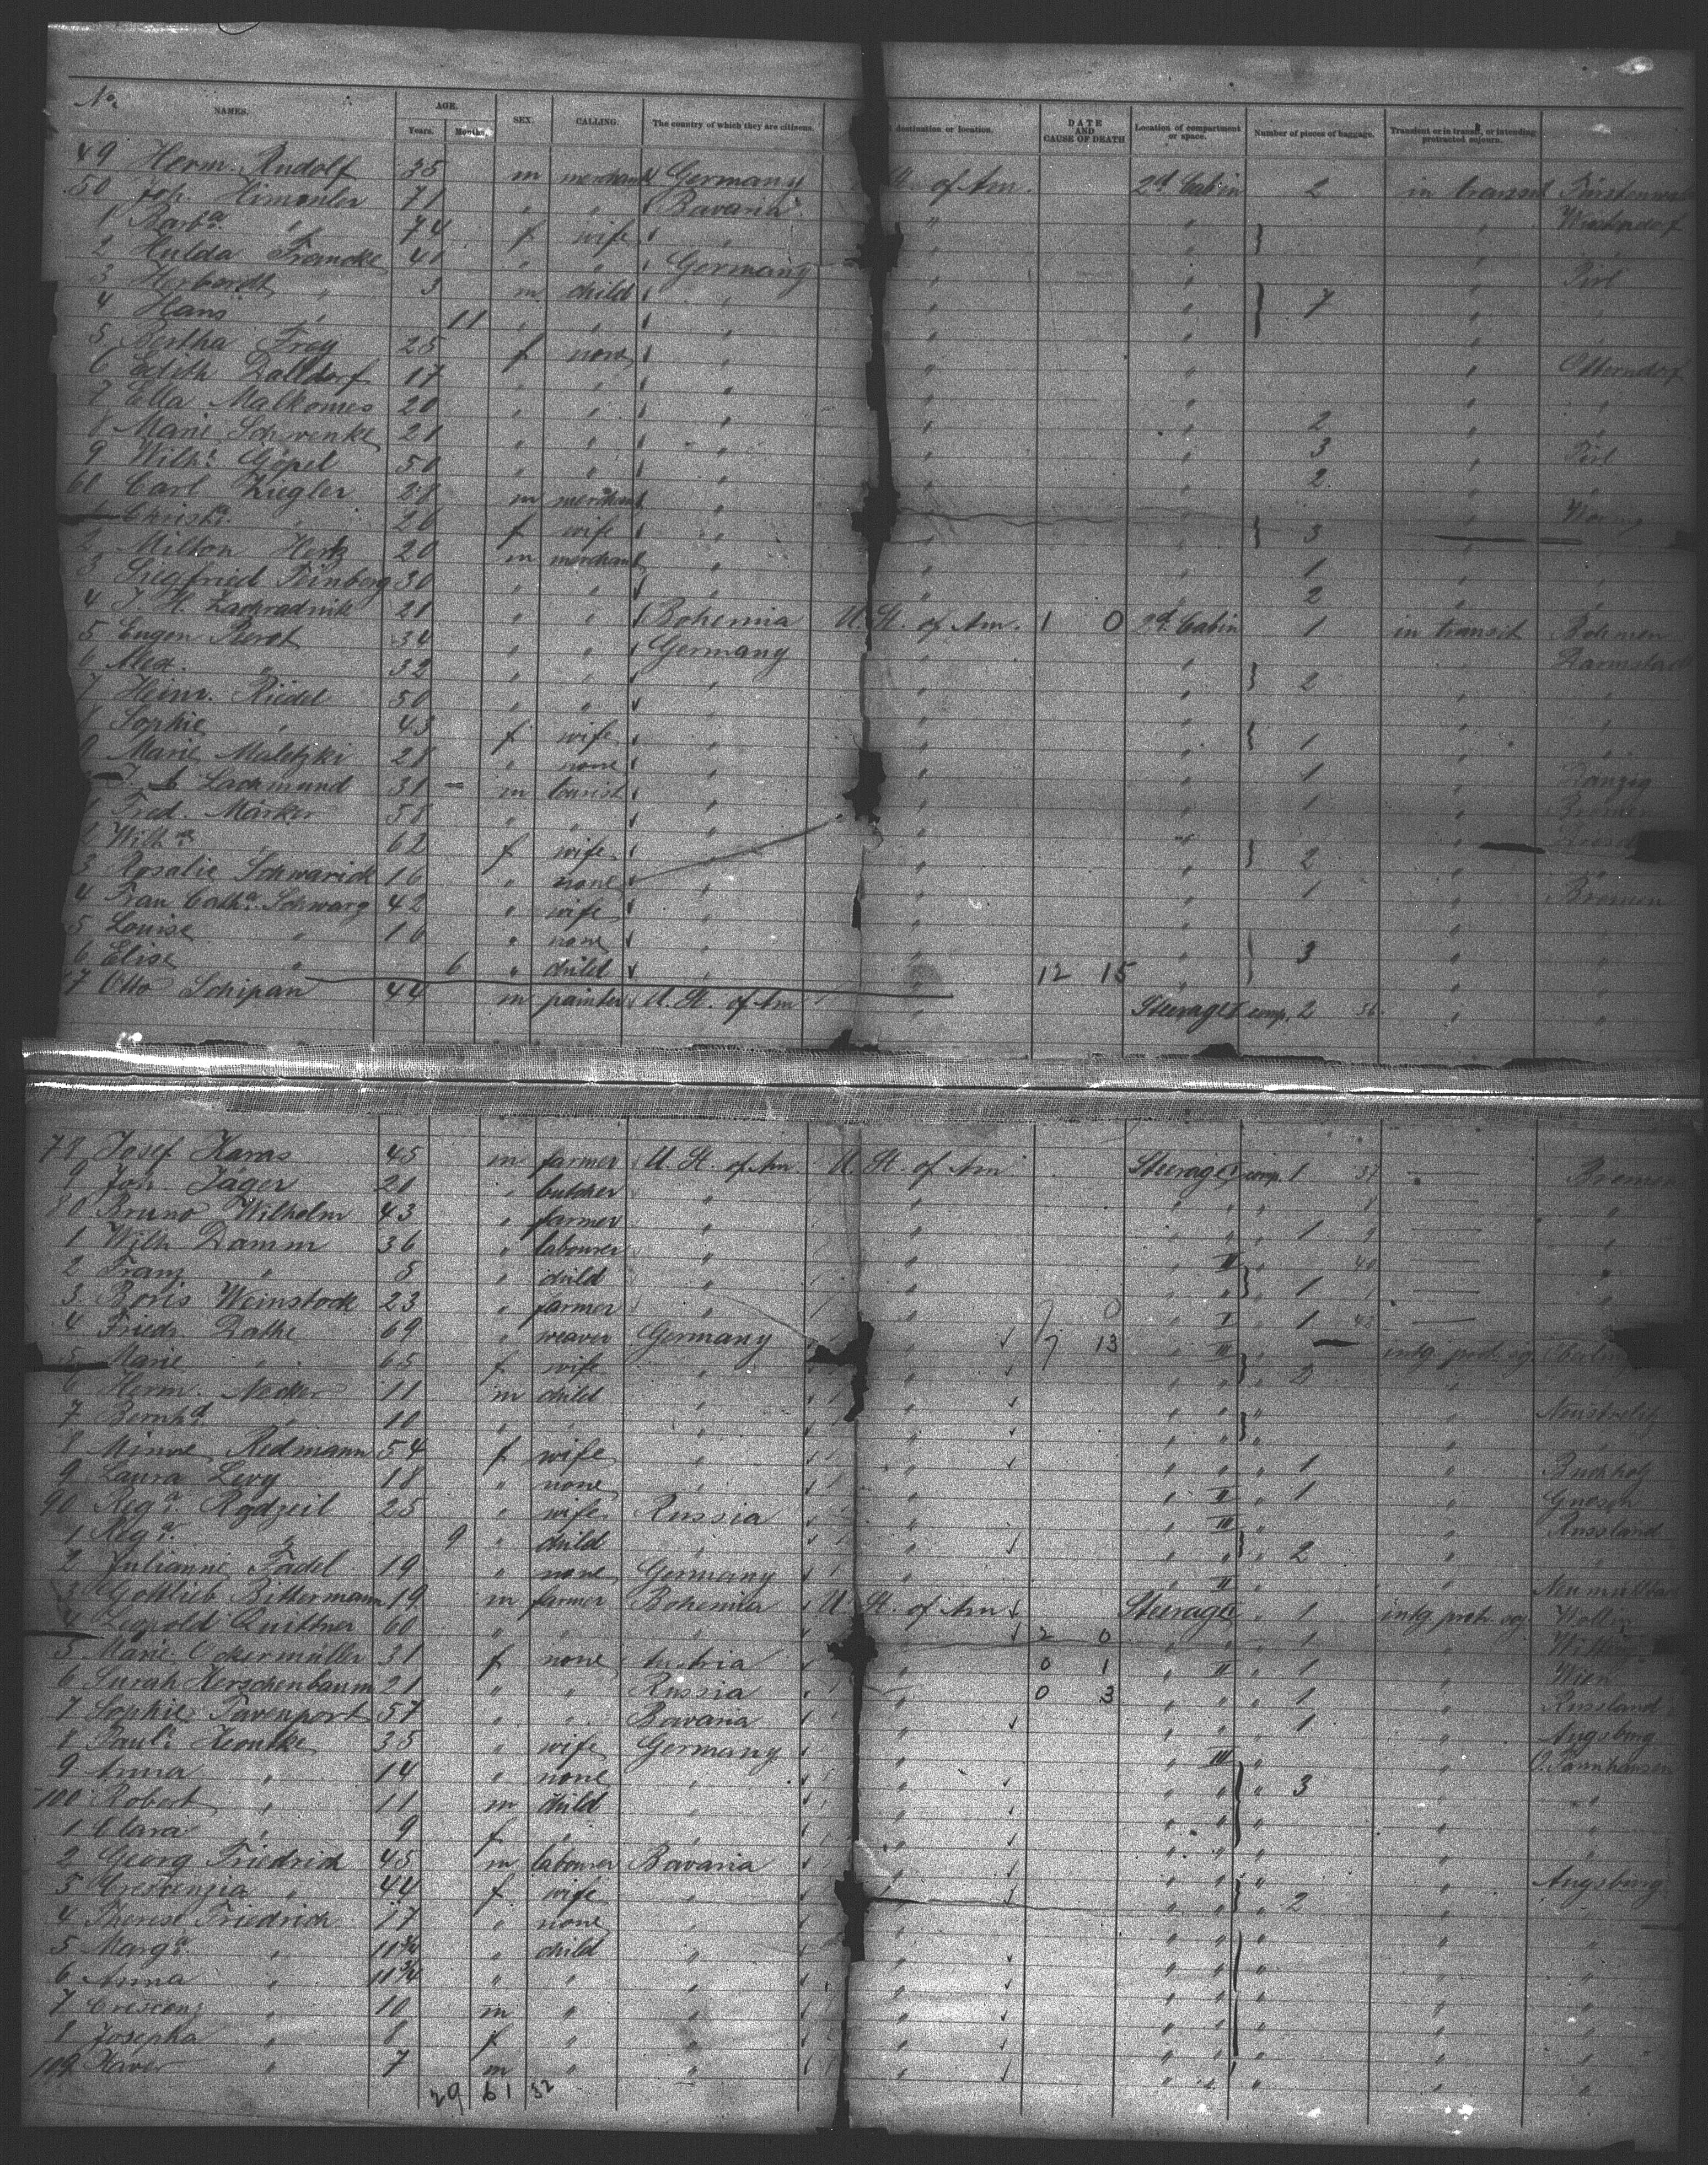 No. NAMES. AGE. Years. Months. SEX. CALLING. The country of which they are citizens. destination or location. DATE AND CAUSE OF DEATH Location of compartment or space. Number of pieces of baggage. Transient or in transit, or intending protracted sojourn.
49 Herm. Rudolf 35 m merchant Germany St. of Am. 2d. Cabin 2 in transit
50 Joh. Himmler 71 " " Bavaria " "
1 Barba. " 74 f wife " " " "
2 Hulda Francke 41 " " Germany " " "
3 Herbardt " 3 m child " " " 7 "
4 Hans " 11 " " " " " "
5 Bertha Frey 25 f none " " " " Otterndorf
6 Edith Dalldorf 17 " " " " " " "
7 Ella Malkomes 20 " " " " " 2 " "
8 Marie Schwenke 21 " " " " " 3 "
9 Wilh. Göpel 50 " " " " " 2 "
61 Carl Ziegler 28 m merchant " " " "
Christa. " 26 f wife " " " 3 "
2 Milton Hertz 20 m merchant " " " 1 " "
3 Siegfried Feinberg 30 " " " " " 2 " "
4 J. H. Zachradnik 21 " " Bohemia U. St. of Am. 1 0 2d. Cabin 1 in transit Böhmen
5 Eugen Pierot 34 " " Germany " " " Darmstadt
6 Alex. " 32 " " " " " 2 " "
7 Heinr. Riedel 50 " " " " " " "
8 Sophie " 43 f wife " " " 1 " "
9 Marie Maletzki 28 " none " " " 1 " Danzig
Lachmund 31 m tourist " " " 1 " Bremen
1 Fred. Märker 58 " " " " " "
Wilha. " 62 f wife " " " 2 " "
3 Rosalie Schwarick 16 " none " " " 1 " Bremen
4 Frau Catha. Schwarz 42 " wife " " " " "
5 Louise " 16 " none " " " 3 " "
6 Elise " 6 " child " " 12 15 " " "
7 Otto Schipan 44 m painter U. St. of Am " Steerage I comp. 2 36 " "
78 Josef Karas 45 m farmer U. St. of Am. U. St. of Am Steerage I comp. 1 37 — Bremen
9 Joh. Jäger 21 " butcher " " " " " 8 — "
80 Bruno Wilhelm 43 " farmer " " " " " 1 9 — "
1 Wilh Damm 36 " labourer " " " II " 40 — "
2 Franz " 5 " child " " " " " 1 — "
3 Boris Weinstock 23 " farmer " " 7 0 " I " 1 — "
4 Friedr. Dathe 69 " weaver Germany " 7 13 " III " intg. prot. soj.
5 Marie " 65 f wife " " " " " 2 "
6 Herm. Necker 11 m child " " " " " " Neustrelitz
7 Bernhd. " 10 " " " " " " " " "
8 Minna Redmann 54 f wife " " " " " 1 " Buchholz
9 Laura Levy 18 " none " " " II " 1 " Gnesen
90 Rega. Rodzeil 25 " wife Russia " " III " " Russland
1 Rega. " 9 " child " " " " " 2 " "
2 Julianne Fadel 19 " none Germany " " II "
3 Gottlieb Bittermann 19 m farmer Bohemia U. St. of Am Steerage " 1 intg. prot. soj. Wollin
4 Leopold Quittner 60 " " " " 2 0 " " " 1 "
5 Marie Ockermüller 31 f none Austria " 0 1 " II " 1 " Wien
6 Surah Herschenbaum 21 " " Russia " 0 3 " " " 1 " Russland
7 Sophie Tavenport 57 " " Bavaria " " " " 1 " Augsburg
8 Paul. Heontke 35 " wife Germany " " III " " O. Tannhausen
9 Anna " 14 " none " " " " " 3 " "
100 Robert " 11 m child " " " " " " "
1 Clara " 9 f " " " " " " " "
2 Georg Friedrich 45 m labourer Bavaria " " " " " Augsburg
3 Crescenzia " 44 f wife " " " " " 2 " "
4 Therese Friedrich 17 " none " " " " " " "
5 Marga. " 11 3/4 " child " " " " " " "
6 Anna " 11 3/4 " " " " " " " " "
7 Crescenz " 10 m " " " " " " " "
8 Josepha " 8 f " " " " " " " "
109 Xaver " 7 m " " " " " " " "
29 61 32